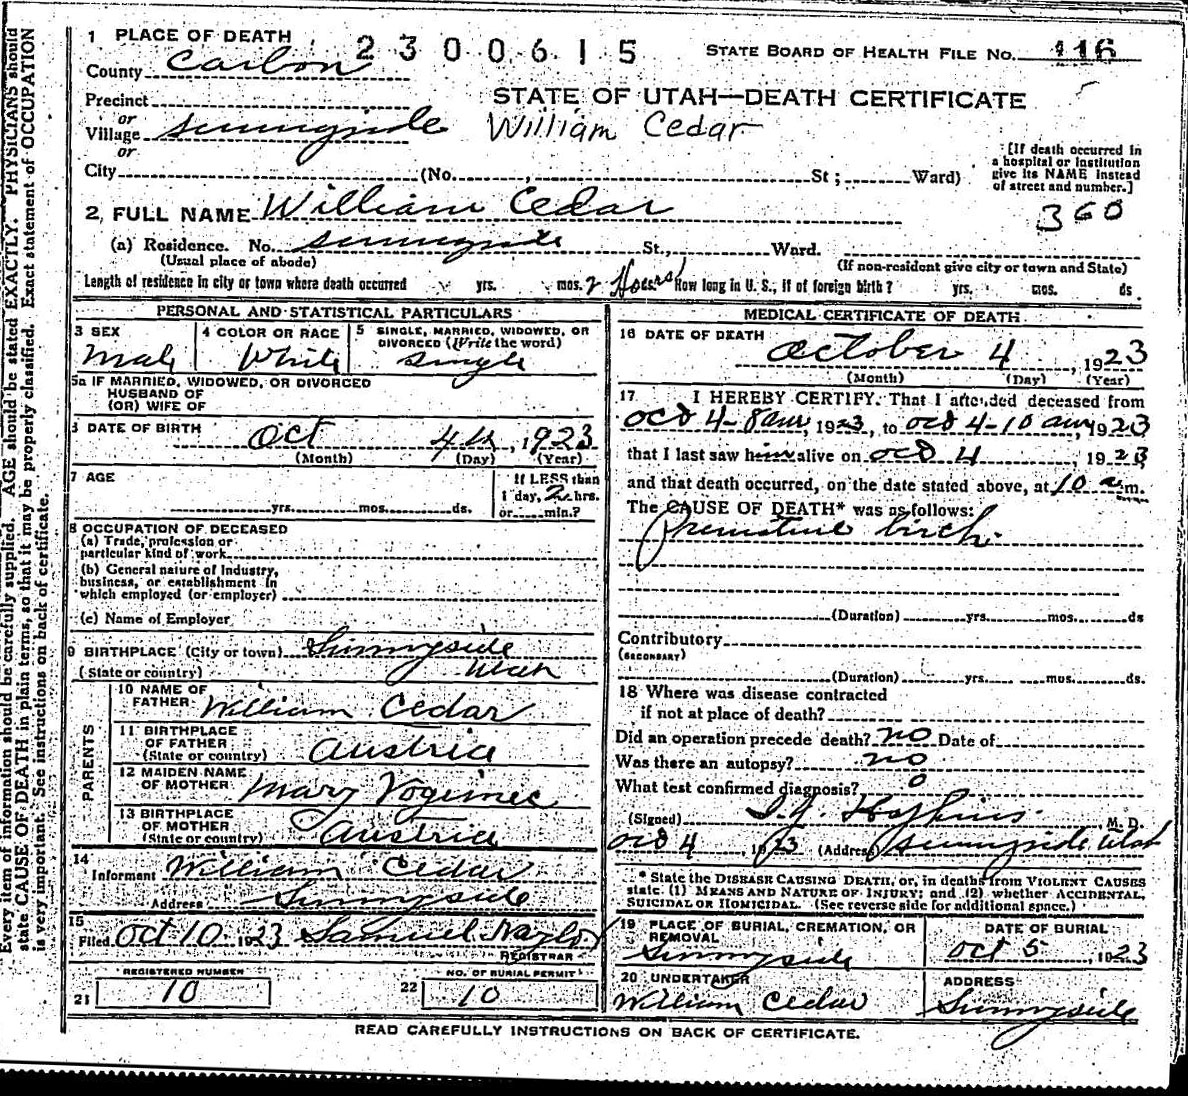 1 PLACE OF DEATH 2300615 STATE BOARD OF HEALTH FILE No. 116
County Carbon
STATE OF UTAH—DEATH CERTIFICATE
Precinct
or
Village Sunnyside William Cedar
or
City (No. St; Ward)
[If death occurred in
a hospital or institution
give its NAME instead
of street and number.]
360
2, FULL NAME William Cedar
(a) Residence. No. Sunnyside St., Ward.
(Usual place of abode) (If non-resident give city or town and State)
Length of residence in city or town where death occurred yrs. mos. 2 Hours How long in U. S., if of foreign birth? yrs. mos. ds.
PERSONAL AND STATISTICAL PARTICULARS
3 SEX Male
4 COLOR OR RACE White
5 SINGLE, MARRIED, WIDOWED, OR
DIVORCED (Write the word)
Single
5a IF MARRIED, WIDOWED, OR DIVORCED
HUSBAND OF
(OR) WIFE OF
6 DATE OF BIRTH Oct 4th, 1923
(Month) (Day) (Year)
7 AGE yrs. mos. ds.
If LESS than
1 day, 2 hrs.
or min.?
8 OCCUPATION OF DECEASED
(a) Trade, profession or
particular kind of work
(b) General nature of Industry,
business, or establishment in
which employed (or employer)
(c) Name of Employer
9 BIRTHPLACE (City or town) Sunnyside
(State or country) Utah
PARENTS
10 NAME OF
FATHER William Cedar
11 BIRTHPLACE
OF FATHER
(State or country) Austria
12 MAIDEN NAME
OF MOTHER Mary
13 BIRTHPLACE
OF MOTHER
(State or country) Austria
14
Informant William Cedar
Address Sunnyside
15
Filed Oct 10 1923 Samuel Naylor
REGISTRAR
REGISTERED NUMBER
21 10
NO. OF BURIAL PERMIT
22 10
MEDICAL CERTIFICATE OF DEATH
16 DATE OF DEATH October 4, 1923
(Month) (Day) (Year)
17 I HEREBY CERTIFY. That I attended deceased from
Oct 4-8 am, 1923, to Oct 4-10 am, 1923
that I last saw him alive on Oct 4, 1923
and that death occurred, on the date stated above, at 10 a m.
The CAUSE OF DEATH* was as follows:
Premature birth.
(Duration) yrs. mos. ds
Contributory
(SECONDARY)
(Duration) yrs. mos. ds.
18 Where was disease contracted
if not at place of death?
Did an operation precede death? no Date of
Was there an autopsy? no
What test confirmed diagnosis? 0
(Signed) Hopkins M. D.
Oct 4 1923 (Address) Sunnyside Utah
* State the DISEASE CAUSING DEATH, or, in deaths from VIOLENT CAUSES
state (1) MEANS AND NATURE OF INJURY; and (2) whether ACCIDENTAL,
SUICIDAL OR HOMICIDAL. (See reverse side for additional space.)
19 PLACE OF BURIAL, CREMATION, OR
REMOVAL
Sunnyside
DATE OF BURIAL
Oct 5, 1923
20 UNDERTAKER
William Cedar
ADDRESS
Sunnyside
READ CAREFULLY INSTRUCTIONS ON BACK OF CERTIFICATE.
Every item of information should be carefully supplied. AGE should be stated EXACTLY. PHYSICIANS should
state CAUSE OF DEATH in plain terms, so that it may be properly classified. Exact statement of OCCUPATION
is very important. See instructions on back of certificate.